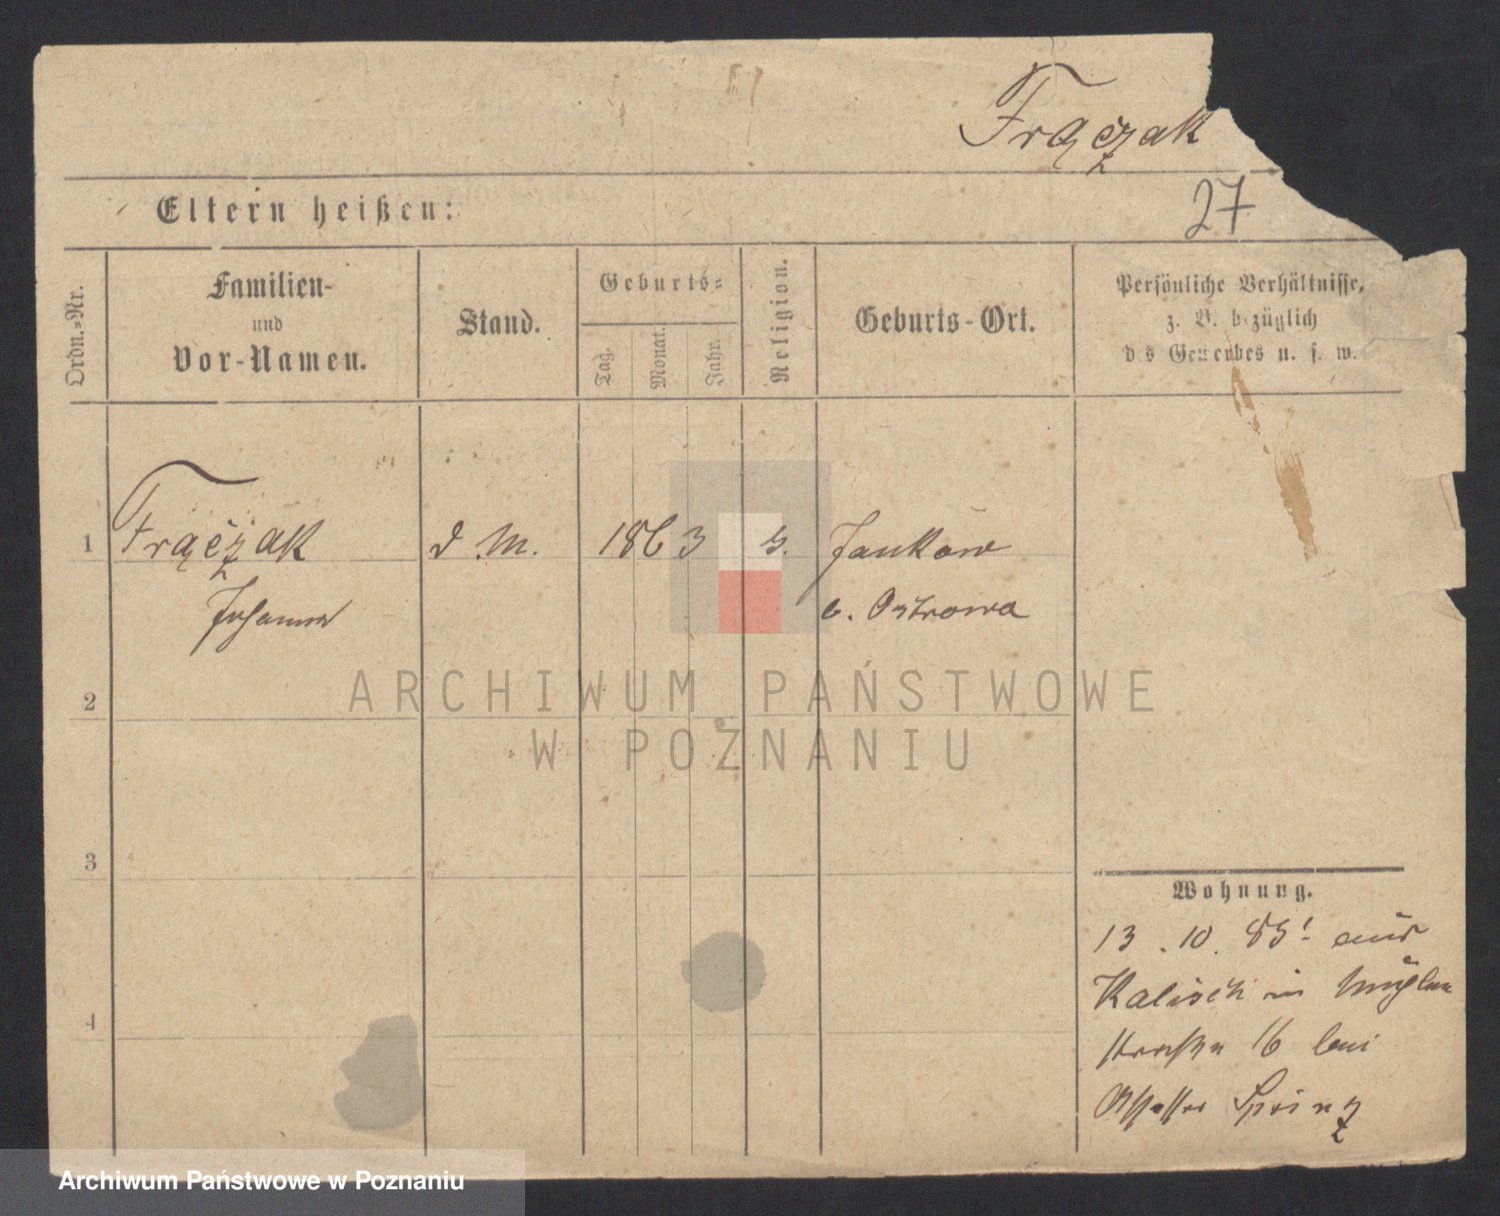 Frączak
27
Eltern heißen:
Ordn.-Nr.
Familien-
und
Vor-Namen.
Stand.
Geburts-
Tag.
Monat.
Jahr.
Religion.
Geburts-Ort.
Persönliche Verhältnisse,
z. B. bezüglich
des Gewerbes u. s. w.
1 Frączak d. M. 1863 Jankow
Johanna b. Ostrowa
2
3
4
Wohnung.
13. 10. 85! aus
Kalisch in Mühlen
straße 16 bei
Assessor
ARCHIWUM PAŃSTWOWE
W POZNANIU
Archiwum Państwowe w Poznaniu